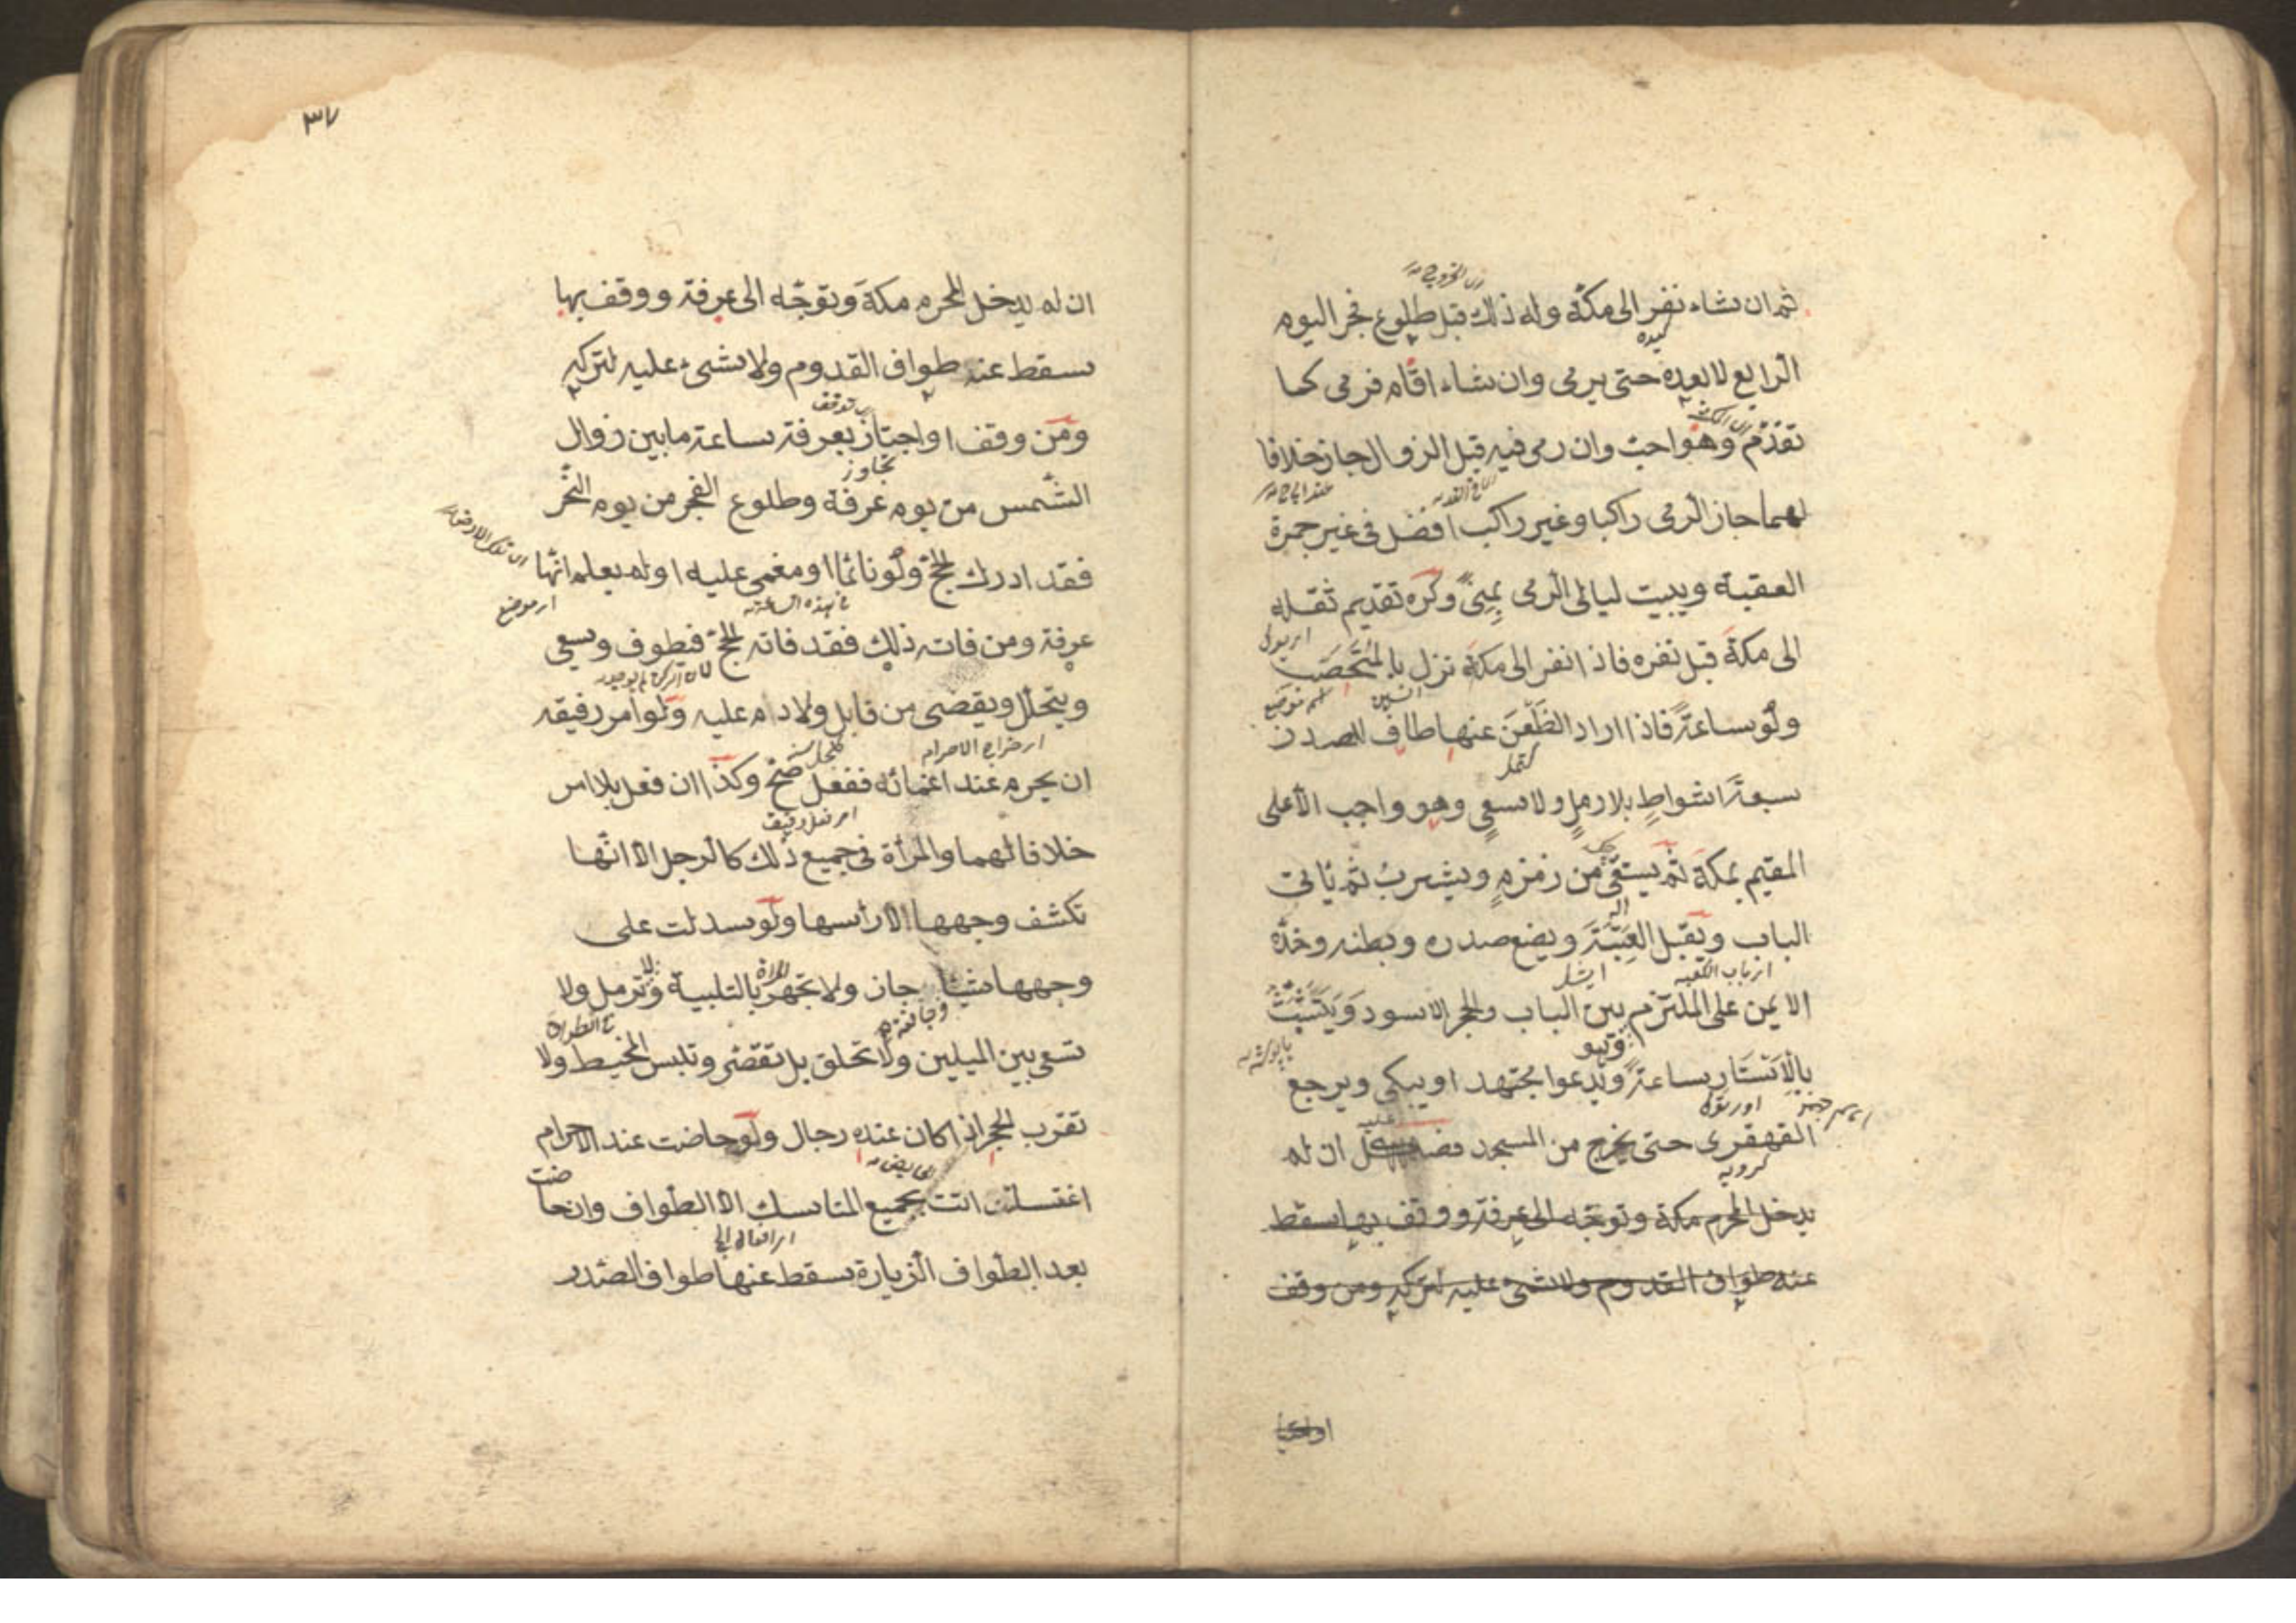 ثم ان شاء نفر الى مكة وله ذلك قبل طلوع فجر اليوم
الرابع لا بعده حتى يرمى وان شاء اقام فرمى كما
تقدم وهو احب وان رمى فيه قبل الزوال جاز خلافا
لهما جاز الرمى راكبا وغير راكب افضل فى غير جمرة
العقبة ويبيت ليالى الرمى بمنى وكره تقديم ثقله
الى مكة قبل نفره فاذا نفر الى مكة نزل بالمحصب
ولو ساعة فاذا اراد الظعن عنها طاف للصدر
سبعة اشواط بلا رمل ولا سعى وهو واجب الا على
المقيم بمكة ثم يستقى من زمزم ويشرب ثم يأتى
الباب ويقبل العتبة ويضع صدره وبطنه وخده
الايمن على الملتزم بين الباب والحجر الاسود ويتشبث
بالاستار ساعة ويدعوا مجتهدا ويبكى ويرجع
القهقرى حتى يخرج من المسجد فصل ان لم
يدخل المحرم مكة وتوجه الى عرفة ووقف بها سقط
عنه طواف القدوم ولا شئ عليه لتركه ومن وقف
او اجتاز
٣٧
ان لم يدخل المحرم مكة وتوجه الى عرفة ووقف بها
سقط عنه طواف القدوم ولا شئ عليه لتركه
ومن وقف او اجتاز بعرفة ساعة ما بين زوال
الشمس من يوم عرفة وطلوع الفجر من يوم النحر
فقد ادرك الحج ولو نائما او مغمى عليه او لم يعلم انها
عرفة ومن فاته ذلك فقد فاته الحج فيطوف ويسعى
ويتحلل ويقضى من قابل ولا دم عليه ولو امر رفيقه
ان يحرم عنه اغمائه ففعل صح وكذا ان فعل بلا امر
خلافا لهما والمرأة فى جميع ذلك كالرجل الا انها
تكشف وجهها لا رأسها ولو سدلت على
وجهها شيئا جاز ولا تجهر بالتلبية ولا ترمل ولا
تسعى بين الميلين ولا تحلق بل تقصر وتلبس المخيط ولا
تقرب الحجر اذا كان عنده رجال ولو حاضت عند الاحرام
اغتسلت اتت بجميع المناسك الا الطواف وان حاضت
بعد الطواف الزيارة سقط عنها طواف الصدر